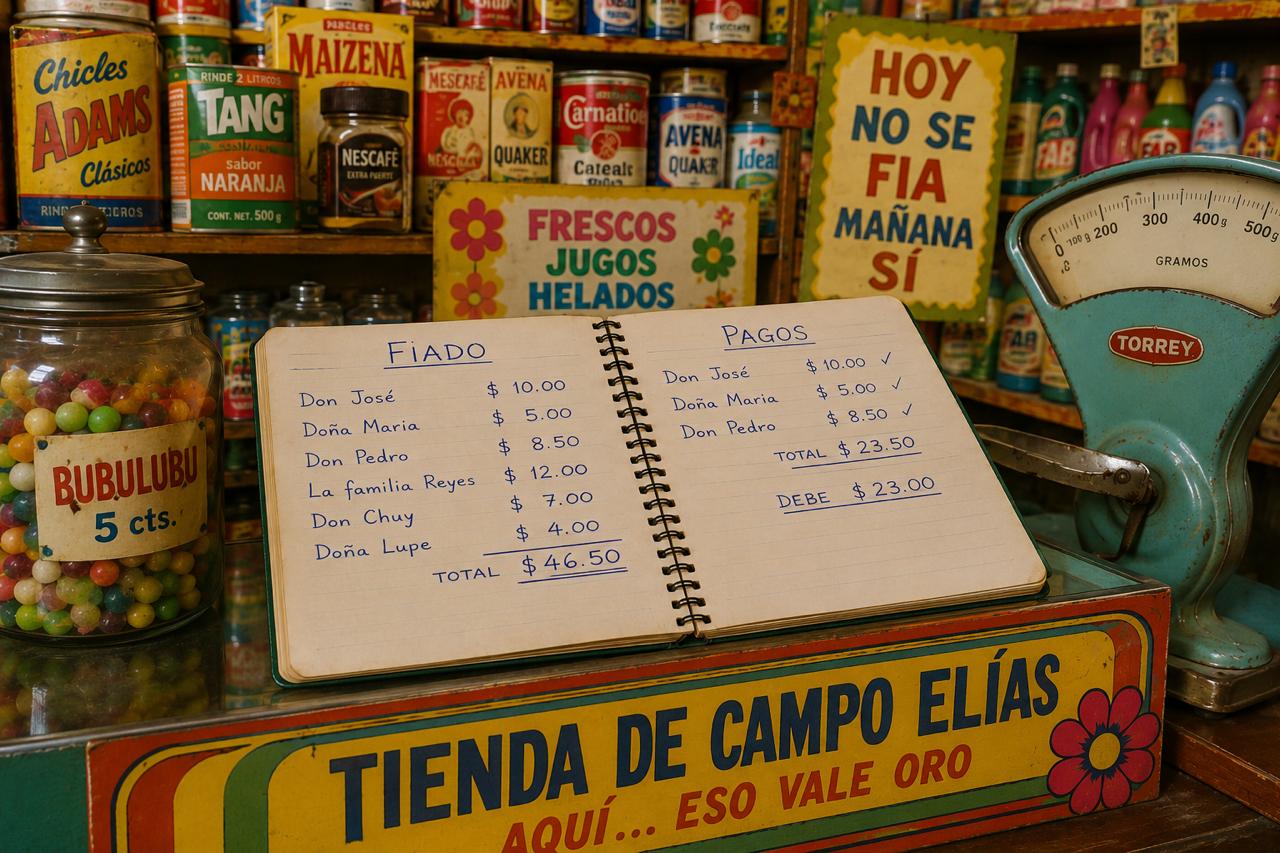 Chicles
ADAMS
Clásicos
RINDE 2 LITROS
TANG
sabor
NARANJA
CONT. NET. 500 g
MAIZENA
NESCAFÉ
EXTRA FUERTE
NESCAFÉ
AVENA
QUAKER
Carnation
AVENA
QUAKER
Ideal
FRESCOS
JUGOS
HELADOS
HOY
NO SE
FIA
MAÑANA
SÍ
FAB
FAB
FAB
0 100 g 200 300 400g 500g
GRAMOS
TORREY
BUBULUBU
5 cts.
FIADO
Don José $ 10.00
Doña Maria $ 5.00
Don Pedro $ 8.50
La familia Reyes $ 12.00
Don Chuy $ 7.00
Doña Lupe $ 4.00
TOTAL $ 46.50
PAGOS
Don José $ 10.00 ✓
Doña Maria $ 5.00 ✓
Don Pedro $ 8.50 ✓
TOTAL $ 23.50
DEBE $ 23.00
TIENDA DE CAMPO ELÍAS
AQUÍ... ESO VALE ORO